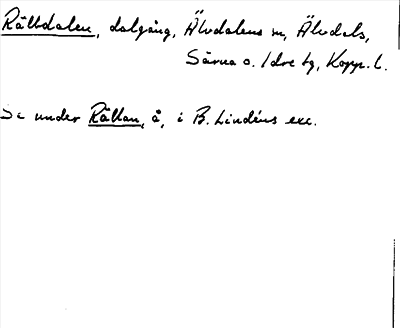 Råttdalen, dalgång, Älvdalens sn, Älvdals,
Särna o. Idre tg, Kopp. l.
Se under Råttan, å, i B. Lindéns exc.